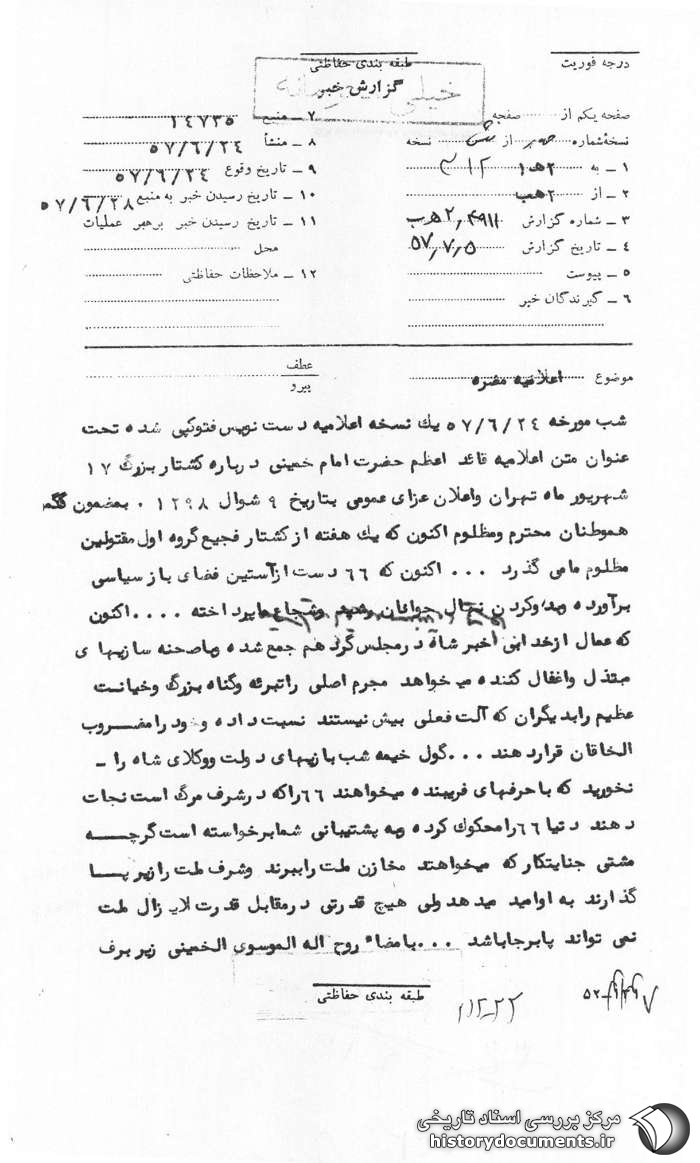 درجه فوریت
طبقه بندی حفاظتی
گزارش خبر
خیلی محرمانه
صفحه یکم از صفحه
نسخه شماره از نسخه
۱ ـ به ۲هـ۱ ۳۱۲
۲ ـ از ۲هـب
۳ ـ شماره گزارش ۴۹۱۱/۲هـب
۴ ـ تاریخ گزارش ۵۷/۷/۵
۵ ـ پیوست
۶ ـ گیرندگان خبر
۷ ـ منبع ۱۴۷۳۵
۸ ـ منشأ ۵۷/۶/۲۴
۹ ـ تاریخ وقوع ۵۷/۶/۲۴
۱۰ ـ تاریخ رسیدن خبر به منبع ۵۷/۶/۲۸
۱۱ ـ تاریخ رسیدن خبر برهبر عملیات
محل
۱۲ ـ ملاحظات حفاظتی
موضوع اعلامیه مضره
عطف
پیرو
شب مورخه ۵۷/۶/۲۴ یك نسخه اعلامیه دست نویس فتوکپی شده تحت
عنوان متن اعلامیه قائد اعظم حضرت امام خمینی درباره کشتار بزرگ ۱۷
شهریور ماه تهران واعلان عزای عمومی بتاریخ ۹ شوال ۱۲۹۸ ۰ بمضمون
هموطنان محترم ومظلوم اکنون که یك هفته از کشتار فجیع گروه اول مقتولین
مظلوم ما می گذرد ... اکنون که ۶۶ دست از آستین فضای باز سیاسی
برآورده وبدروکردن نهال جوانان رشید وشجاع ما پرداخته .... اکنون
که عمال از خدا بی خبر شاه در مجلس گرد هم جمع شده وباصحنه سازیهای
مبتذل واغفال کننده میخواهد مجرم اصلی راتبرئه وگناه بزرگ وخیانت
عظیم رابدیگران که آلت فعلی بیش نیستند نسبت داده وخود را مضروب
الخاقان قرار دهند ... گول خیمه شب بازیهای دولت ووکلای شاه را ـ
نخورید که باحرفهای فریبنده میخواهند ۶۶ راکه درشرف مرگ است نجات
دهند دنیا ۶۶ را محکوك کرده وبه پشتیبانی شما برخواسته است گرچه
مشتی جنایتکار که میخواهند مخازن ملت راببرند وشرف ملت رازیر پا
گذارند به اوامید میدهد ولی هیچ قدرتی درمقابل قدرت لایزال ملت
نمی تواند پابرجا باشد ... بامضاء روح اله الموسوی الخمینی زیر برف
طبقه بندی حفاظتی
۳۱۲-۲۲
مرکز بررسی اسناد تاریخی
historydocuments.ir